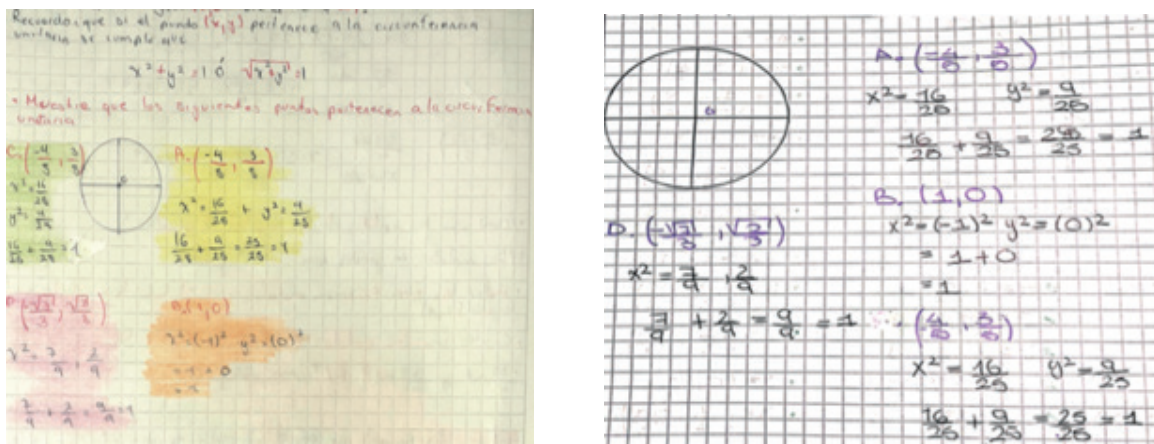 Recuerdo: que si el punto (x,y) pertenece a la circunferencia
unitaria se cumple que
x² + y² = 1 ó √x²+y² = 1
• Muestre que los siguientes puntos pertenecen a la circunferencia
unitaria
C. (-4/5, 3/5)
x² = 16/25
y² = 9/25
16/25 + 9/25 = 1
A. (-4/5, 3/5)
x² = 16/25 + y² = 9/25
16/25 + 9/25 = 25/25 = 1
x² = 7/9, 2/9
7/9 + 2/9 = 9/9 = 1
x² = (-1)² y² = (0)²
A. (-4/5, 3/5)
x² = 16/25 y² = 9/25
B. (1,0)
x² = (-1)² y² = (0)²
= 1 + 0
= 1
x² = 7/9, 2/9
7/9 + 2/9 = 9/9 = 1
(4/5, 3/5)
x² = 16/25 y² = 9/25
16/25 + 9/25 = 25/25 = 1